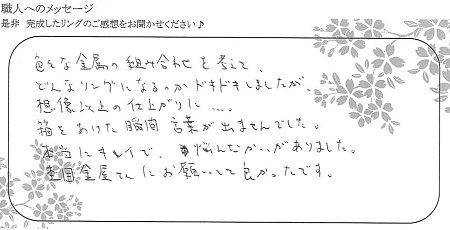 職人へのメッセージ
是非 完成したリングのご感想をお聞かせください♪
色々な金属の組み合わせを考えて、
どんなリングになるのかドキドキしましたが、
想像以上の仕上がりに...。
箱をあけた瞬間 言葉が出ませんでした。
本当にキレイで、悩んだかいがありました。
杢目金屋さんにお願いして良かったです。